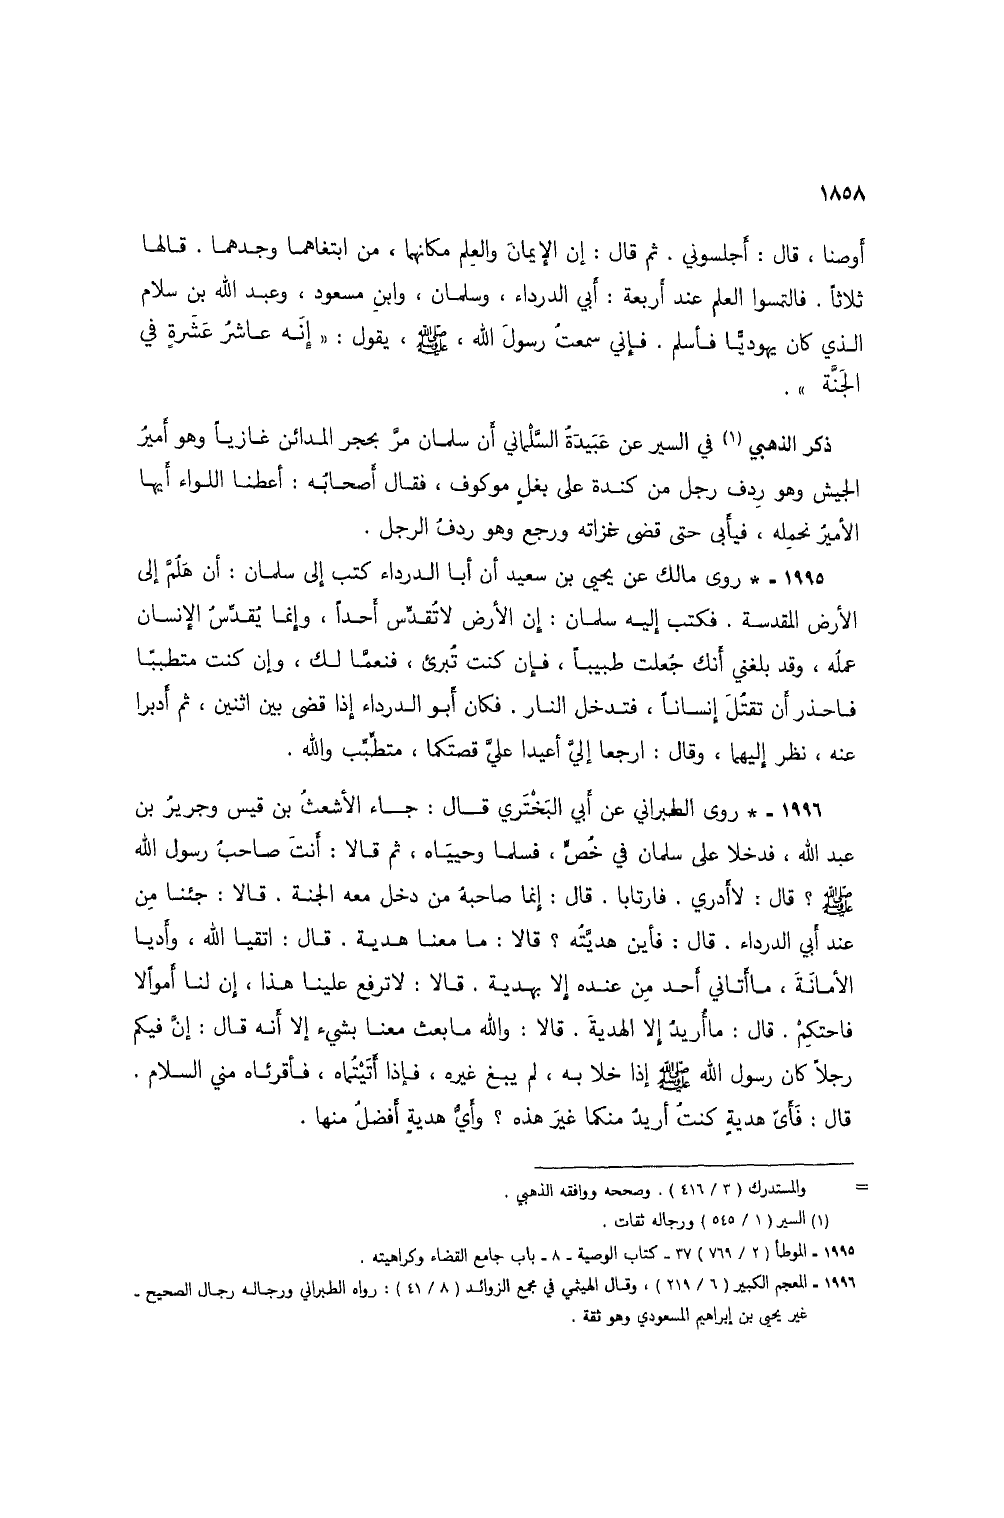 ١٨٥٨
أوصنا ، قال : أَجلسوني . ثم قال : إن الإيمانَ والعِلم مكانهما ، من ابتغاهما وجدهما . قالها
ثلاثاً . فالتمسوا العلم عند أربعة : أبي الدرداء ، وسلمان ، وابنِ مسعود ، وعبد الله بن سلام
الذي كان يهوديًّا فأسلم . فإني سمعتُ رسولَ الله ، ﷺ ، يقول : « إنَّه عاشرُ عَشَرةٍ في
الجَنَّة » .
ذكر الذهبي (١) في السير عن عَبَيدَةُ السَّلْماني أن سلمان مرَّ بحجر المدائن غازياً وهو أَميرُ
الجيش وهو رِدف رجل من كندة على بغلٍ موكوف ، فقال أَصحابُه : أعطنا اللواء أيها
الأميرُ نحمِله ، فيأبى حتى قضى غزاته ورجع وهو ردفُ الرجل .
١٩٩٥ - * روى مالك عن يحيى بن سعيد أن أبا الدرداء كتب إلى سلمان : أن هَلُمَّ إلى
الأرض المقدسة . فكتب إليه سلمان : إن الأرض لاتُقدِّس أحداً ، وإنما يُقدِّسُ الإنسان
عملُه ، وقد بلغني أنك جُعلت طبيباً ، فإن كنت تُبرئ ، فنعمَّا لك ، وإن كنت متطببًا
فاحذر أن تقتُلَ إنساناً ، فتدخل النار . فكان أبو الدرداء إذا قضى بين اثنين ، ثم أدبرا
عنه ، نظر إليهما ، وقال : ارجعا إليَّ أعيدا عليَّ قصتكما ، متطبِّب والله .
١٩٩٦ - * روى الطبراني عن أبي البَخْتَري قال : جاء الأشعثُ بن قيس وجريرُ بن
عبد الله ، فدخلا على سلمان في خُصٍّ ، فسلما وحييَاه ، ثم قالا : أَنتَ صاحبُ رسول الله
ﷺ ؟ قال : لاأدري . فارتابا . قال : إنما صاحبهُ من دخل معه الجنة . قالا : جئنا مِن
عند أبي الدرداء . قال : فأين هديَّتُه ؟ قالا : ما معنا هدية . قال : اتقيا الله ، وأديا
الأمانَةَ ، ماأتاني أحد مِن عنده إلا بهدية . قالا : لاترفع علينا هذا ، إن لنا أموالا
فاحتكِمْ . قال : ماأُريدُ إلا الهديةَ . قالا : والله مابعث معنا بشيء إلا أنه قال : إنَّ فيكم
رجلاً كان رسول الله ﷺ إذا خلا به ، لم يبغ غيره ، فإذا أَتَيْتُماه ، فأقرئاه مني السلام .
قال : فَأَيّ هديةٍ كنتُ أريدُ منكما غيرَ هذه ؟ وأيُّ هديةٍ أفضلُ منها .
= والمستدرك ( ٣ / ٤١٦ ) . وصححه ووافقه الذهبي .
(١) السير ( ١ / ٥٤٥ ) ورجاله ثقات .
١٩٩٥ - الموطأ ( ٢ / ٧٦٩ ) ٣٧ - كتاب الوصية - ٨ - باب جامع القضاء وكراهيته .
١٩٩٦ - المعجم الكبير ( ٦ / ٢١٩ ) ، وقال الهيثمي في مجمع الزوائد ( ٨ / ٤١ ) : رواه الطبراني ورجاله رجال الصحيح -
غير يحيى بن إبراهيم المسعودي وهو ثقة .